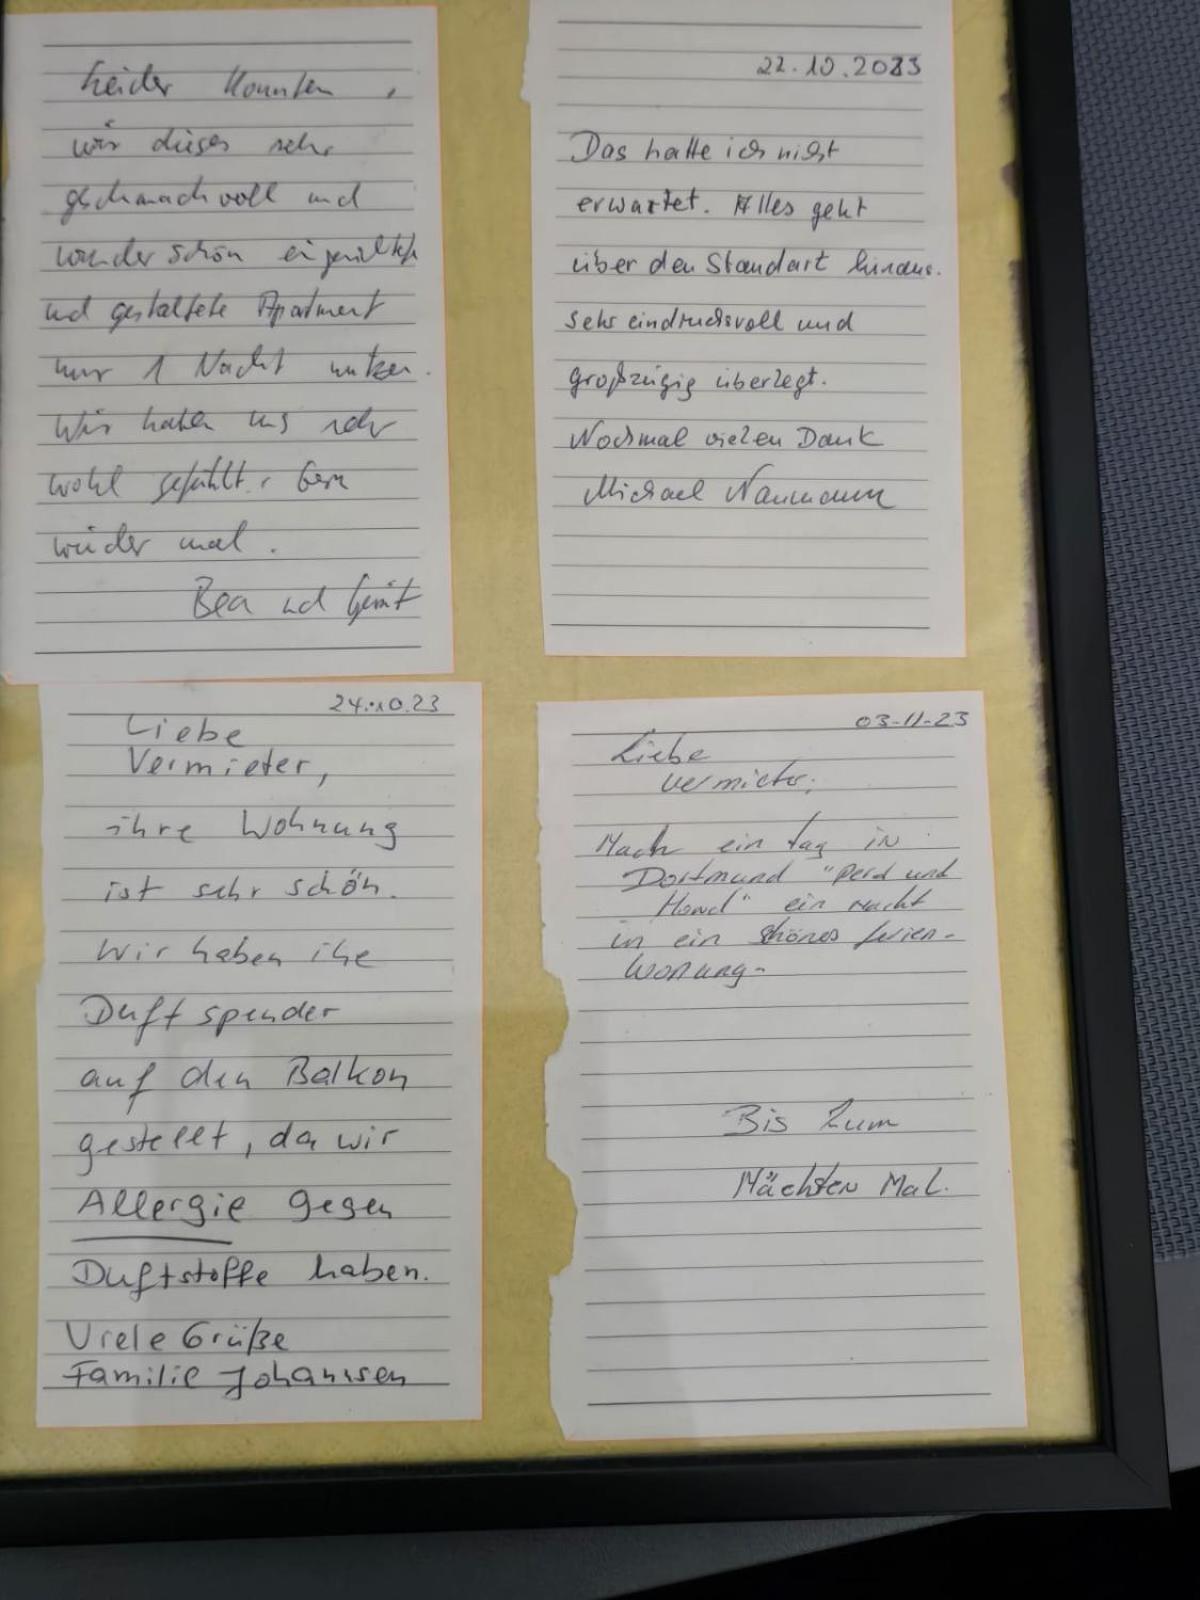 Leider konnten,
wir dieses sehr
geschmackvoll und
wunderschön eingerichtete
und gestaltete Apartment
nur 1 Nacht nutzen.
Wir haben uns sehr
wohl gefühlt. Gern
wieder mal.
Bea und
22.10.2023
Das hatte ich nicht
erwartet. Alles geht
über den Standart hinaus.
Sehr eindrucksvoll und
großzügig überlegt.
Nochmal vielen Dank
Michael Naumann
24.10.23
Liebe
Vermieter,
ihre Wohnung
ist sehr schön.
Wir haben ihe
Duftspender
auf den Balkon
gestellt, da wir
Allergie gegen
Duftstoffe haben.
Viele Grüße
Familie Johannsen
03-11-23
Liebe
Vermieter;
Nach ein tag in
Dortmund "Perd und
Hond" ein nacht
in ein schönes ferien-
wonung-
Bis Zum
Nächsten Mal.